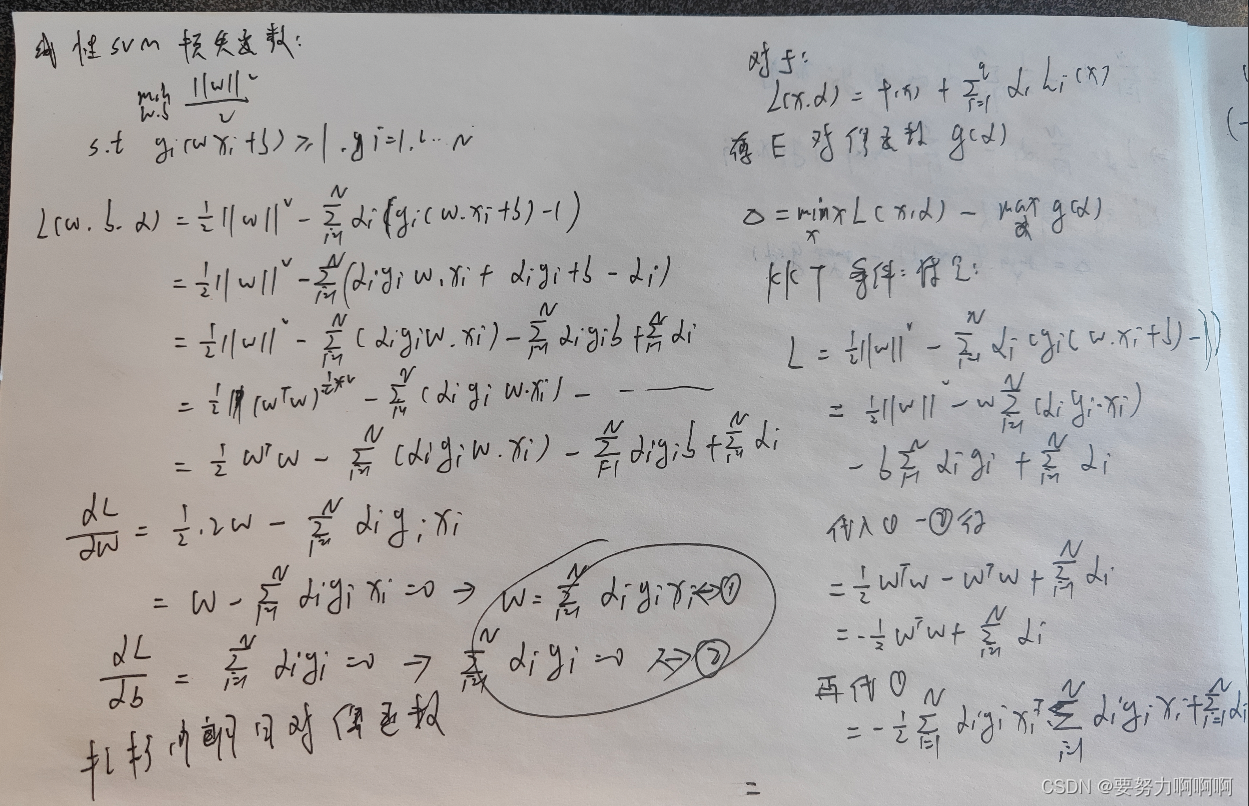 线性SVM 损失函数:
min w.b ||w||² / 2
s.t yi(w xi+b) ≥ 1 . yi=1.2... N
L(w. b. α) = ½||w||² - Σ_{i=1}^N αi(yi(w.xi+b)-1)
= ½||w||² - Σ_{i=1}^N (αiyi w.xi + αiyi+b - αi)
= ½||w||² - Σ_{i=1}^N (αiyiw.xi) - Σ_{i=1}^N αiyib + Σ_{i=1}^N αi
= ½ (wᵀw)^{½×2} - Σ_{i=1}^N (αiyi w.xi) - - ——
= ½ wᵀw - Σ_{i=1}^N (αiyiw.xi) - Σ_{i=1}^N αiyib + Σ_{i=1}^N αi
∂L/∂w = ½.2w - Σ_{i=1}^N αiyixi
= w - Σ_{i=1}^N αiyixi =0 → w = Σ_{i=1}^N αiyixi ⇔ ①
∂L/∂b = Σ_{i=1}^N αiyi =0 → Σ_{i=1}^N αiyi =0 ⇔ ②
对偶函数
对于:
L(x.α) = f(x) + Σ_{i=1}^q αi hi(x)
对偶函数 g(α)
0 = min_x L(x,α) - max_α g(α)
KKT 条件:
L = ½||w||² - Σ_{i=1}^N αi(yi(w.xi+b)-1)
= ½||w||² - w Σ_{i=1}^N (αiyi.xi)
- b Σ_{i=1}^N αiyi + Σ_{i=1}^N αi
代入① - ②得
= ½ wᵀw - wᵀw + Σ_{i=1}^N αi
= -½ wᵀw + Σ_{i=1}^N αi
再代①
= -½ Σ_{i=1}^N αiyixiᵀ. Σ_{i=1}^N αiyixi + Σ_{i=1}^N αi
=
CSDN @要努力啊啊啊